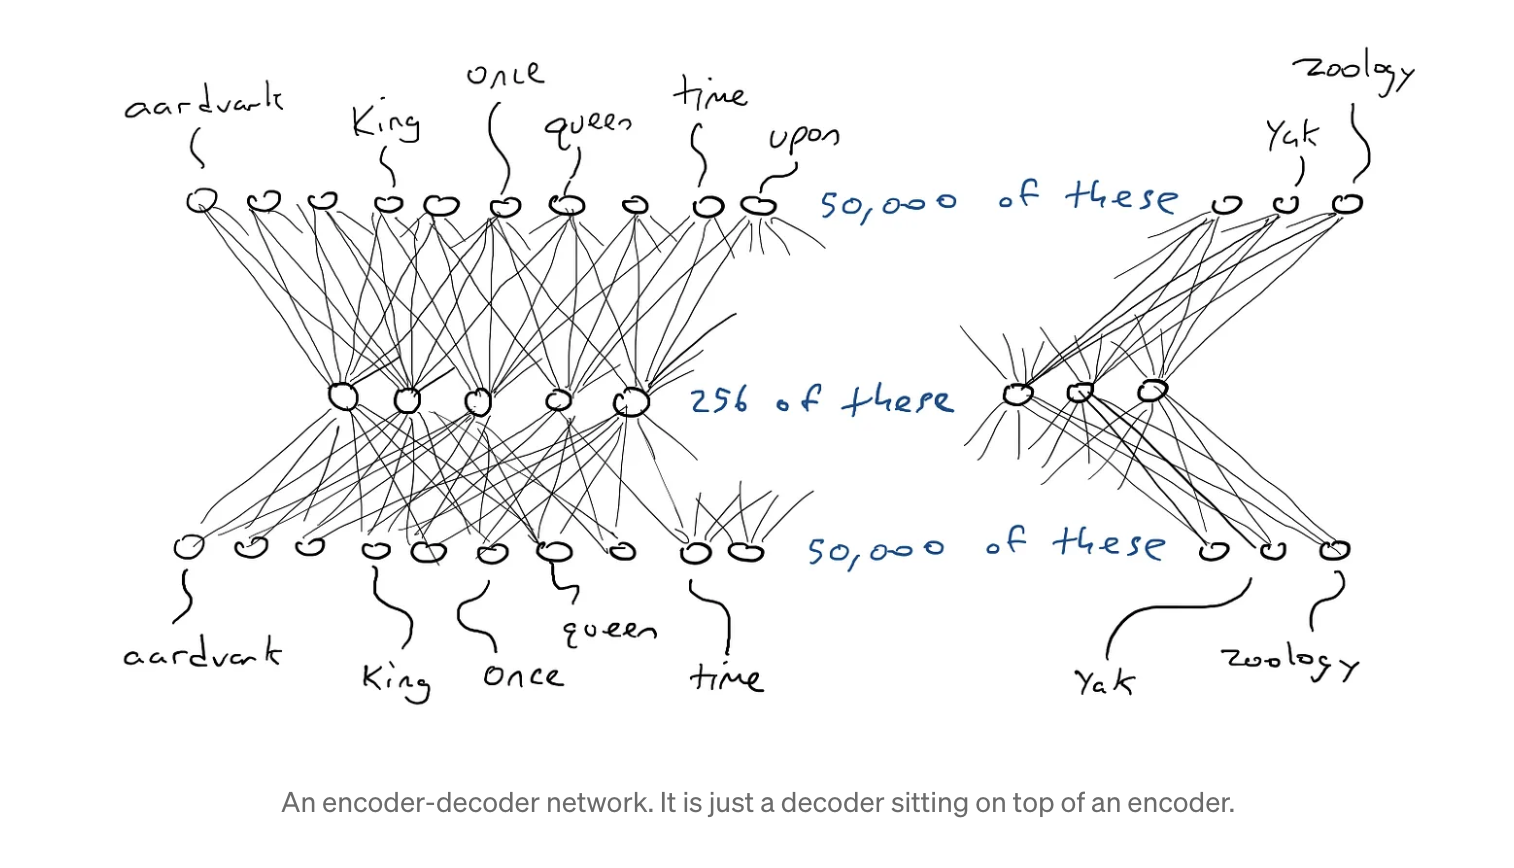 aardvark King once queen time upon Yak zoology
50,000 of these
256 of these
50,000 of these
aardvark King once queen time Yak zoology
An encoder-decoder network. It is just a decoder sitting on top of an encoder.